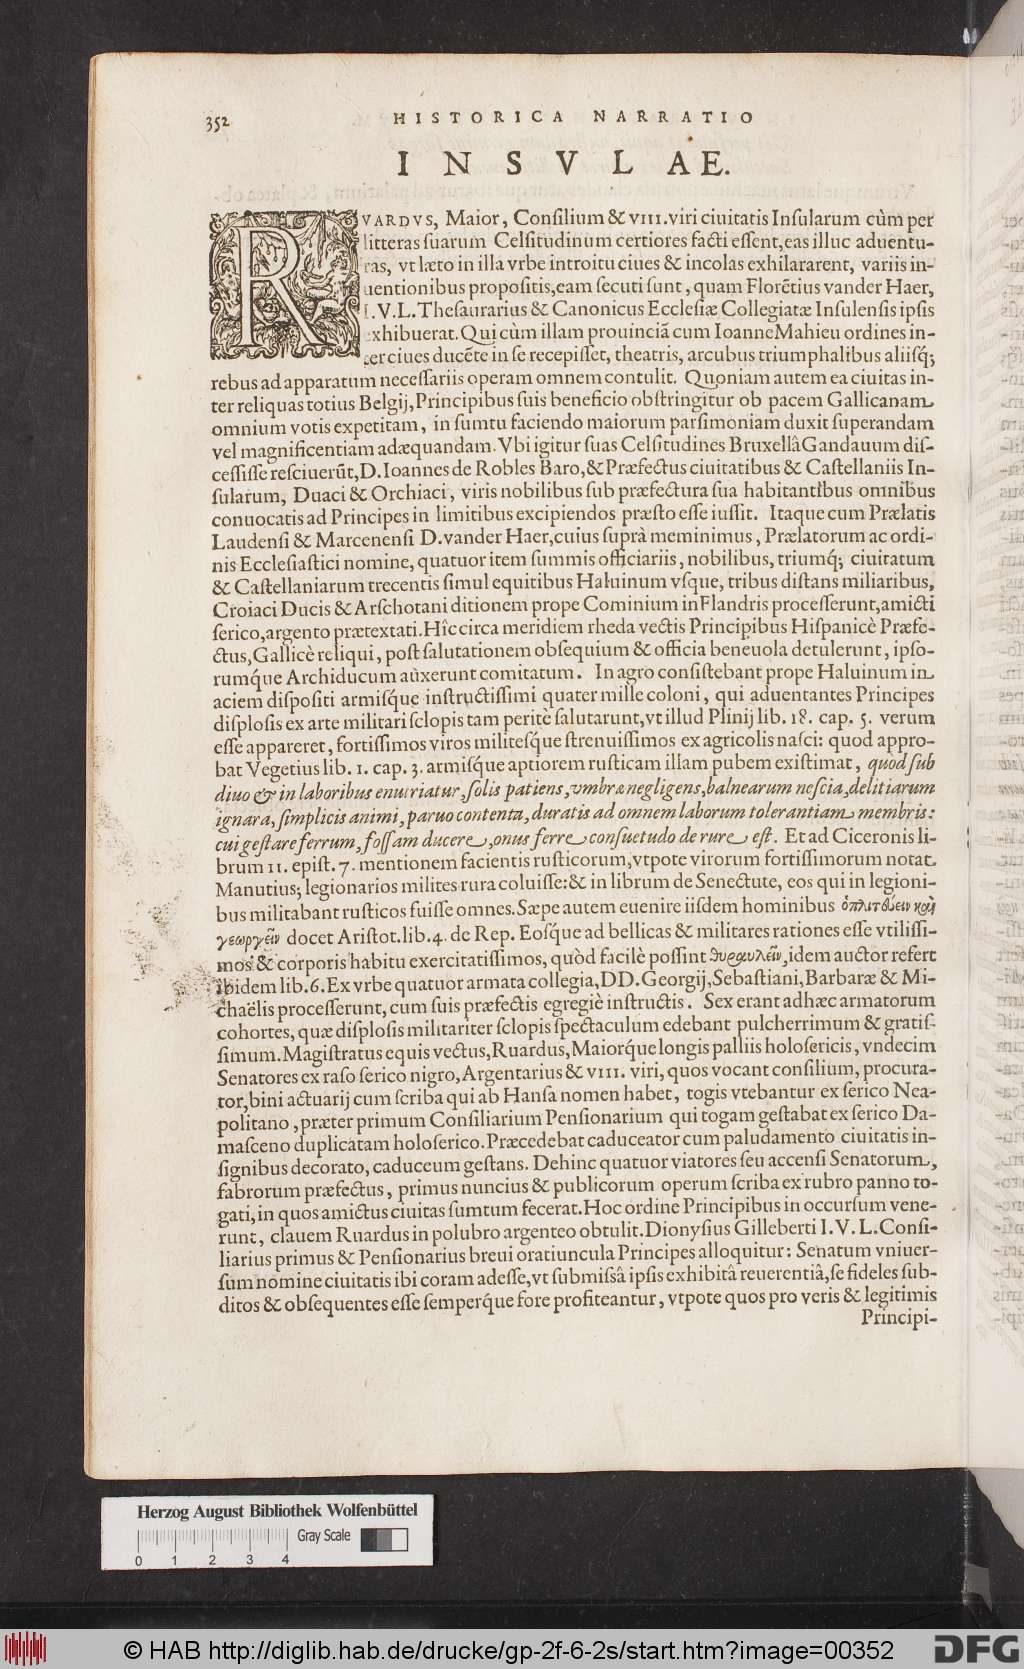 352 HISTORICA NARRATIO
INSVLAE.
RVARDVS, Maior, Conſilium & VIII.viri ciuitatis Inſularum cùm per
litteras ſuarum Celſitudinum certiores facti eſſent,eas illuc aduentu-
ras, vt læto in illa vrbe introitu ciues & incolas exhilararent, variis in-
uentionibus propoſitis,eam ſecuti ſunt, quam Florẽtius vander Haer,
I.V.L.Theſaurarius & Canonicus Eccleſiæ Collegiatæ Inſulenſis ipſis
exhibuerat. Qui cùm illam prouinciã cum Ioanne Mahieu ordines in-
ter ciues ducẽte in ſe recepiſſet, theatris, arcubus triumphalibus aliiſq́;
rebus ad apparatum neceſſariis operam omnem contulit. Quoniam autem ea ciuitas in-
ter reliquas totius Belgij, Principibus ſuis beneficio obſtringitur ob pacem Gallicanam
omnium votis expetitam, in ſumtu faciendo maiorum parſimoniam duxit ſuperandam
vel magnificentiam adæquandam. Vbi igitur ſuas Celſitudines Bruxellâ Gandauum diſ-
ceſſiſſe reſciuerũt, D. Ioannes de Robles Baro,& Præfectus ciuitatibus & Caſtellaniis In-
ſularum, Duaci & Orchiaci, viris nobilibus ſub præfectura ſua habitantibus omnibus
conuocatis ad Principes in limitibus excipiendos præſto eſſe iuſſit. Itaque cum Prælatis
Laudenſi & Marcenenſi D. vander Haer,cuius ſuprà meminimus, Prælatorum ac ordi-
nis Eccleſiaſtici nomine, quatuor item ſummis officiariis, nobilibus, triumq́; ciuitatum
& Caſtellaniarum trecentis ſimul equitibus Haluinum vſque, tribus diſtans miliaribus,
Croiaci Ducis & Arſchotani ditionem prope Cominium in Flandris proceſſerunt,amicti
ſerico,argento prætextati. Hîc circa meridiem rheda vectis Principibus Hiſpanicè Præfe-
ctus,Gallicè reliqui, poſt ſalutationem obſequium & officia beneuola detulerunt, ipſo-
rumq́ue Archiducum aùxerunt comitatum. In agro conſiſtebant prope Haluinum in
aciem diſpoſiti armiſq́ue inſtructiſſimi quater mille coloni, qui aduentantes Principes
diſploſis ex arte militari ſclopis tam peritè ſalutarunt,vt illud Plinij lib. 18. cap. 5. verum
eſſe appareret, fortiſſimos viros militeſq́ue ſtrenuiſſimos ex agricolis naſci: quod appro-
bat Vegetius lib. 1. cap. 3. armiſq́ue aptiorem ruſticam illam pubem exiſtimat, quòd ſub
diuo & in laboribus enutriatur, ſolis patiens, vmbræ negligens, balnearum neſcia, delitiarum
ignara, ſimplicis animi, paruo contenta, duratis ad omnem laborum tolerantiam membris:
cui geſtare ferrum, foſſam ducere, onus ferre conſuetudo de rure eſt. Et ad Ciceronis li-
brum 11. epiſt. 7. mentionem facientis ruſticorum,vtpote virorum fortiſſimorum notat
Manutius; legionarios milites rura coluiſſe: & in librum de Senectute, eos qui in legioni-
bus militabant ruſticos fuiſſe omnes. Sæpe autem euenire iiſdem hominibus ὁπλιτεύειν καὶ
γεωργεῖν docet Ariſtot.lib.4. de Rep. Eoſq́ue ad bellicas & militares rationes eſſe vtiliſſi-
mos & corporis habitu exercitatiſſimos, quòd facilè poſſint θυραυλεῖν, idem auctor refert
ibidem lib.6. Ex vrbe quatuor armata collegia, DD. Georgij, Sebaſtiani, Barbaræ & Mi-
chaëlis proceſſerunt, cum ſuis præfectis egregiè inſtructis. Sex erant adhæc armatorum
cohortes, quæ diſploſis militariter ſclopis ſpectaculum edebant pulcherrimum & gratiſ-
ſimum. Magiſtratus equis vectus, Ruardus, Maiorq́ue longis palliis holoſericis, vndecim
Senatores ex raſo ſerico nigro, Argentarius & VIII. viri, quos vocant conſilium, procura-
tor,bini actuarij cum ſcriba qui ab Hanſa nomen habet, togis vtebantur ex ſerico Nea-
politano, præter primum Conſiliarium Penſionarium qui togam geſtabat ex ſerico Da-
maſceno duplicatam holoſerico. Præcedebat caduceator cum paludamento ciuitatis in-
ſignibus decorato, caduceum geſtans. Dehinc quatuor viatores ſeu accenſi Senatorum,
fabrorum præfectus, primus nuncius & publicorum operum ſcriba ex rubro panno to-
gati, in quos amictus ciuitas ſumtum fecerat. Hoc ordine Principibus in occurſum vene-
runt, clauem Ruardus in polubro argenteo obtulit. Dionyſius Gilleberti I.V.L. Conſi-
liarius primus & Penſionarius breui oratiuncula Principes alloquitur: Senatum vniuer-
ſum nomine ciuitatis ibi coram adeſſe,vt ſubmiſsâ ipſis exhibitâ reuerentiâ,ſe fideles ſub-
ditos & obſequentes eſſe ſemperq́ue fore profiteantur, vtpote quos pro veris & legitimis
Principi-
Herzog August Bibliothek Wolfenbüttel
Gray Scale
0 1 2 3 4
© HAB http://diglib.hab.de/drucke/gp-2f-6-2s/start.htm?image=00352
DFG